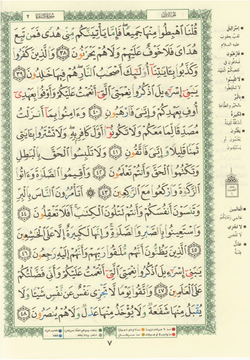 قُلْنَا ٱهْبِطُوا۟ مِنْهَا جَمِيعًا فَإِمَّا يَأْتِيَنَّكُم مِّنِّى هُدًى فَمَن تَبِعَ
هُدَاىَ فَلَا خَوْفٌ عَلَيْهِمْ وَلَا هُمْ يَحْزَنُونَ ٣٨ وَٱلَّذِينَ كَفَرُوا۟
وَكَذَّبُوا۟ بِـَٔايَـٰتِنَآ أُو۟لَـٰٓئِكَ أَصْحَـٰبُ ٱلنَّارِ هُمْ فِيهَا خَـٰلِدُونَ ٣٩
يَـٰبَنِىٓ إِسْرَٰٓءِيلَ ٱذْكُرُوا۟ نِعْمَتِىَ ٱلَّتِىٓ أَنْعَمْتُ عَلَيْكُمْ وَأَوْفُوا۟ بِعَهْدِىٓ
أُوفِ بِعَهْدِكُمْ وَإِيَّـٰىَ فَٱرْهَبُونِ ٤٠ وَءَامِنُوا۟ بِمَآ أَنزَلْتُ
مُصَدِّقًا لِّمَا مَعَكُمْ وَلَا تَكُونُوٓا۟ أَوَّلَ كَافِرٍۭ بِهِۦ وَلَا تَشْتَرُوا۟ بِـَٔايَـٰتِى
ثَمَنًا قَلِيلًا وَإِيَّـٰىَ فَٱتَّقُونِ ٤١ وَلَا تَلْبِسُوا۟ ٱلْحَقَّ بِٱلْبَـٰطِلِ
وَتَكْتُمُوا۟ ٱلْحَقَّ وَأَنتُمْ تَعْلَمُونَ ٤٢ وَأَقِيمُوا۟ ٱلصَّلَوٰةَ وَءَاتُوا۟
ٱلزَّكَوٰةَ وَٱرْكَعُوا۟ مَعَ ٱلرَّٰكِعِينَ ٤٣ أَتَأْمُرُونَ ٱلنَّاسَ بِٱلْبِرِّ
وَتَنسَوْنَ أَنفُسَكُمْ وَأَنتُمْ تَتْلُونَ ٱلْكِتَـٰبَ أَفَلَا تَعْقِلُونَ ٤٤
وَٱسْتَعِينُوا۟ بِٱلصَّبْرِ وَٱلصَّلَوٰةِ وَإِنَّهَا لَكَبِيرَةٌ إِلَّا عَلَى ٱلْخَـٰشِعِينَ ٤٥
ٱلَّذِينَ يَظُنُّونَ أَنَّهُم مُّلَـٰقُوا۟ رَبِّهِمْ وَأَنَّهُمْ إِلَيْهِ رَٰجِعُونَ ٤٦
يَـٰبَنِىٓ إِسْرَٰٓءِيلَ ٱذْكُرُوا۟ نِعْمَتِىَ ٱلَّتِىٓ أَنْعَمْتُ عَلَيْكُمْ وَأَنِّى فَضَّلْتُكُمْ
عَلَى ٱلْعَـٰلَمِينَ ٤٧ وَٱتَّقُوا۟ يَوْمًا لَّا تَجْزِى نَفْسٌ عَن نَّفْسٍ شَيْـًٔا وَلَا
يُقْبَلُ مِنْهَا شَفَـٰعَةٌ وَلَا يُؤْخَذُ مِنْهَا عَدْلٌ وَلَا هُمْ يُنصَرُونَ ٤٨
٧